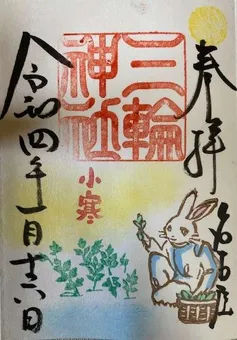 奉拝
三輪
神社
小寒
名古屋
令和四年一月十六日